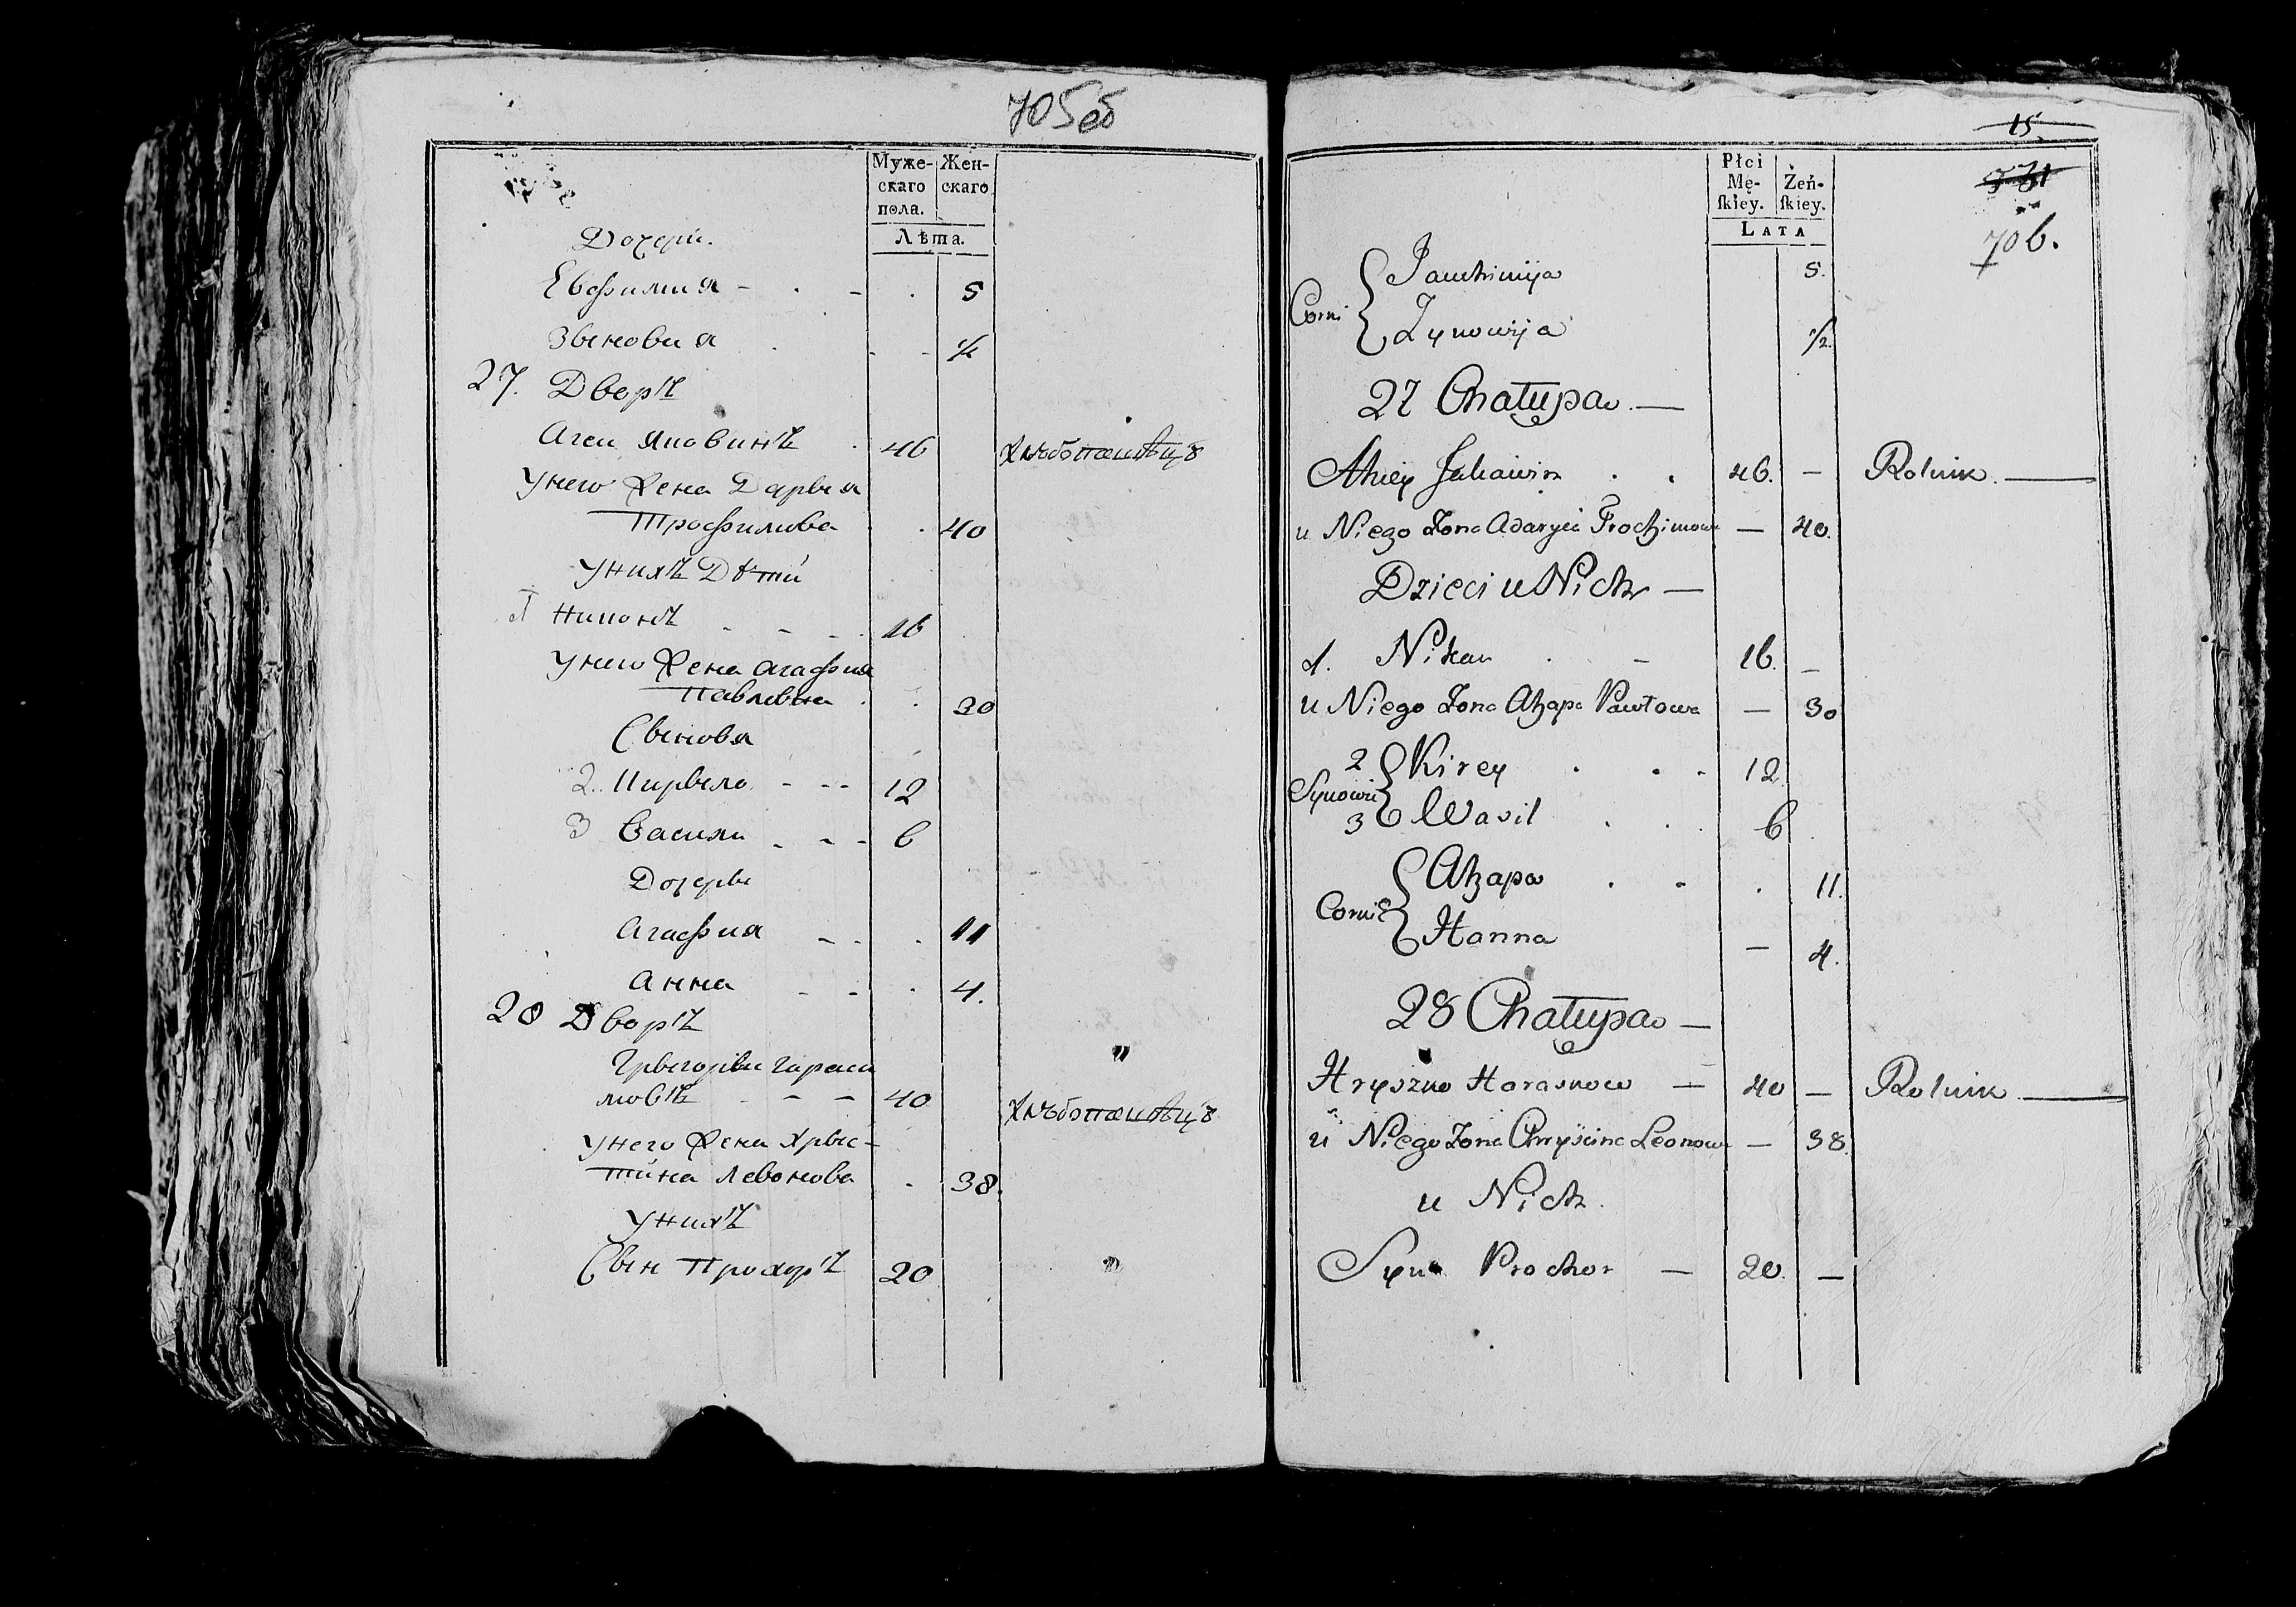 705об
Муже-
скаго
пола.
Жен-
скаго
Лѣта.
Дочери.
Евфимия - . - . 5
Звеновия . - - ½
27. Дворъ
Агеи Яковинъ . 46 хлѣбопашецъ
У него жена Дарья
Трофимова . 40
У нихъ Дѣти
1 Никонъ - - - . 16
У него жена Агафия
Павлова . . 30
Сыновя
2. Кирыло - - - 12
3 Васили - - - 6
Дочеры
Агафия - . . 11
Анна - - . 4.
28 Дворъ
Грыгоры Гараси
мовъ - - 40 хлѣбопашецъ
"
У него жена Хрыс-
тина Левонова . 38.
У нихъ
Сын Прохоръ 20
"
15
706.
Płci
Mę-
skiey.
Żeń-
skiey.
LATA
Corni { Jauchimija 5.
Zynowija ½.
27 Chatupa —
Ahiey Jakawin . . 46. — Rolnik. —
u Niego Żona Adaryia Trochimowa — 40.
Dzieci u Nich —
1. Nikan . - 16. —
u Niego Żona Ahapa Pawłowa — 30
Synowie { 2 Kirey . . . 12
3 Wasil . . . 6 .
Cornie { Ahapa . - . 11.
Hanna — 4.
28 Chatupa —
Hryszko Harasimow — 40 — Rolnik. —
u Niego Żona Chryścina Leonowa — 38.
u Nich.
Syn Prochor — 20. —